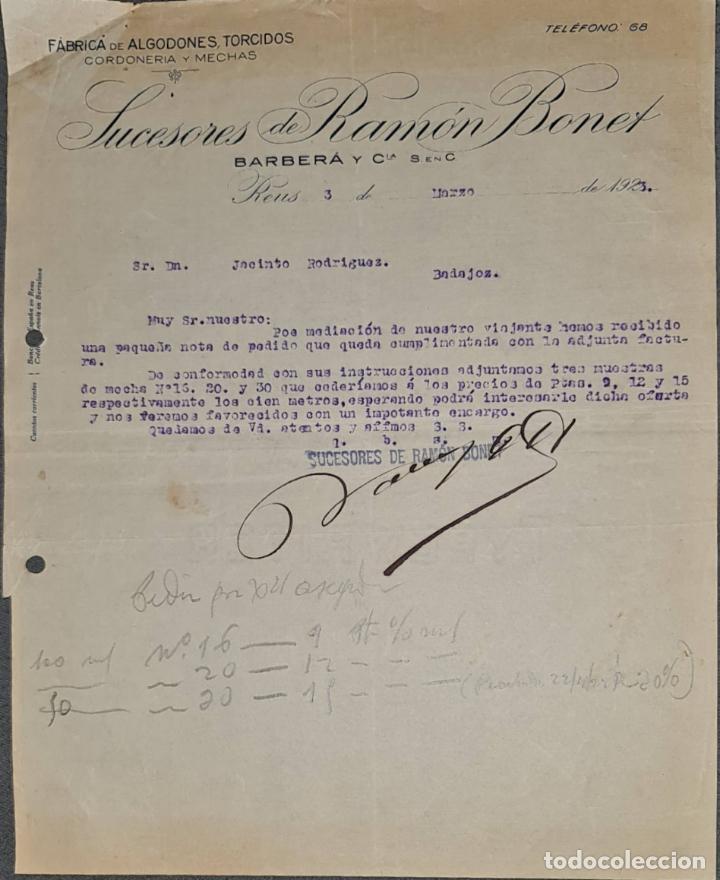 TELÉFONO: 68
FÁBRICA DE ALGODONES, TORCIDOS
CORDONERIA Y MECHAS
Sucesores de Ramón Bonet
BARBERÁ Y Cía S. EN C.
Reus 3 de Marzo de 1923.
Sr. Dn. Jacinto Rodriguez.
Badajoz.
Muy Sr.nuestro:
Poe mediación de nuestro viajante hemos recibido
una pequeña nota de pedido que queda cumplimentada con la adjunta factu-
ra.
De conformodad con sus instrucciones adjuntamos tres muestras
de mecha Nº16. 20. y 30 que cederiamos á los precios de Ptas. 9, 12 y 15
respectivamente los cien metros, esperando podrá interesarle dicha oferta
y nos veremos favorecidos con un impotante encargo.
Quedamos de Vd. atentos y affmos S. S.
q. b. s.
SUCESORES DE RAMÓN BONET
España en Reus
en Barcelona
Cuentas corrientes
Pedir por
Nº 16 — 9
20 — 12
50 — 15
todocoleccion.net